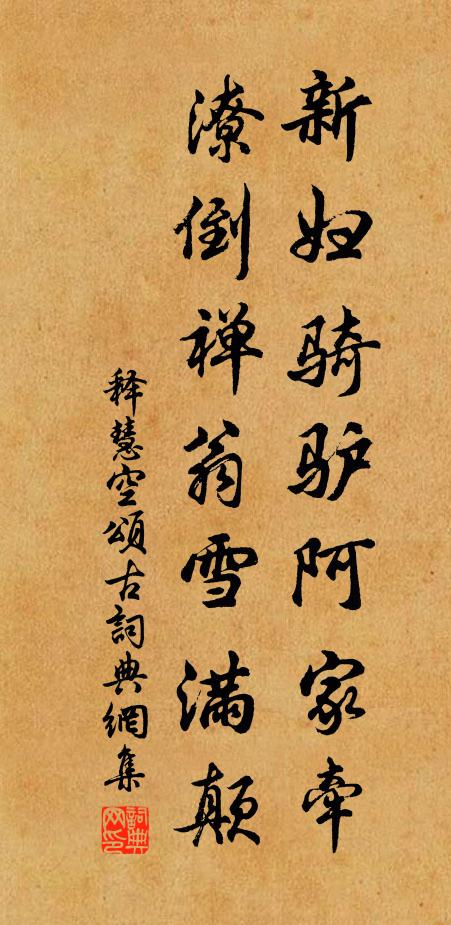 新妇骑驴阿家牵
潦倒禅翁雪满颠
释慧空頌古詞典網集
詞典网印